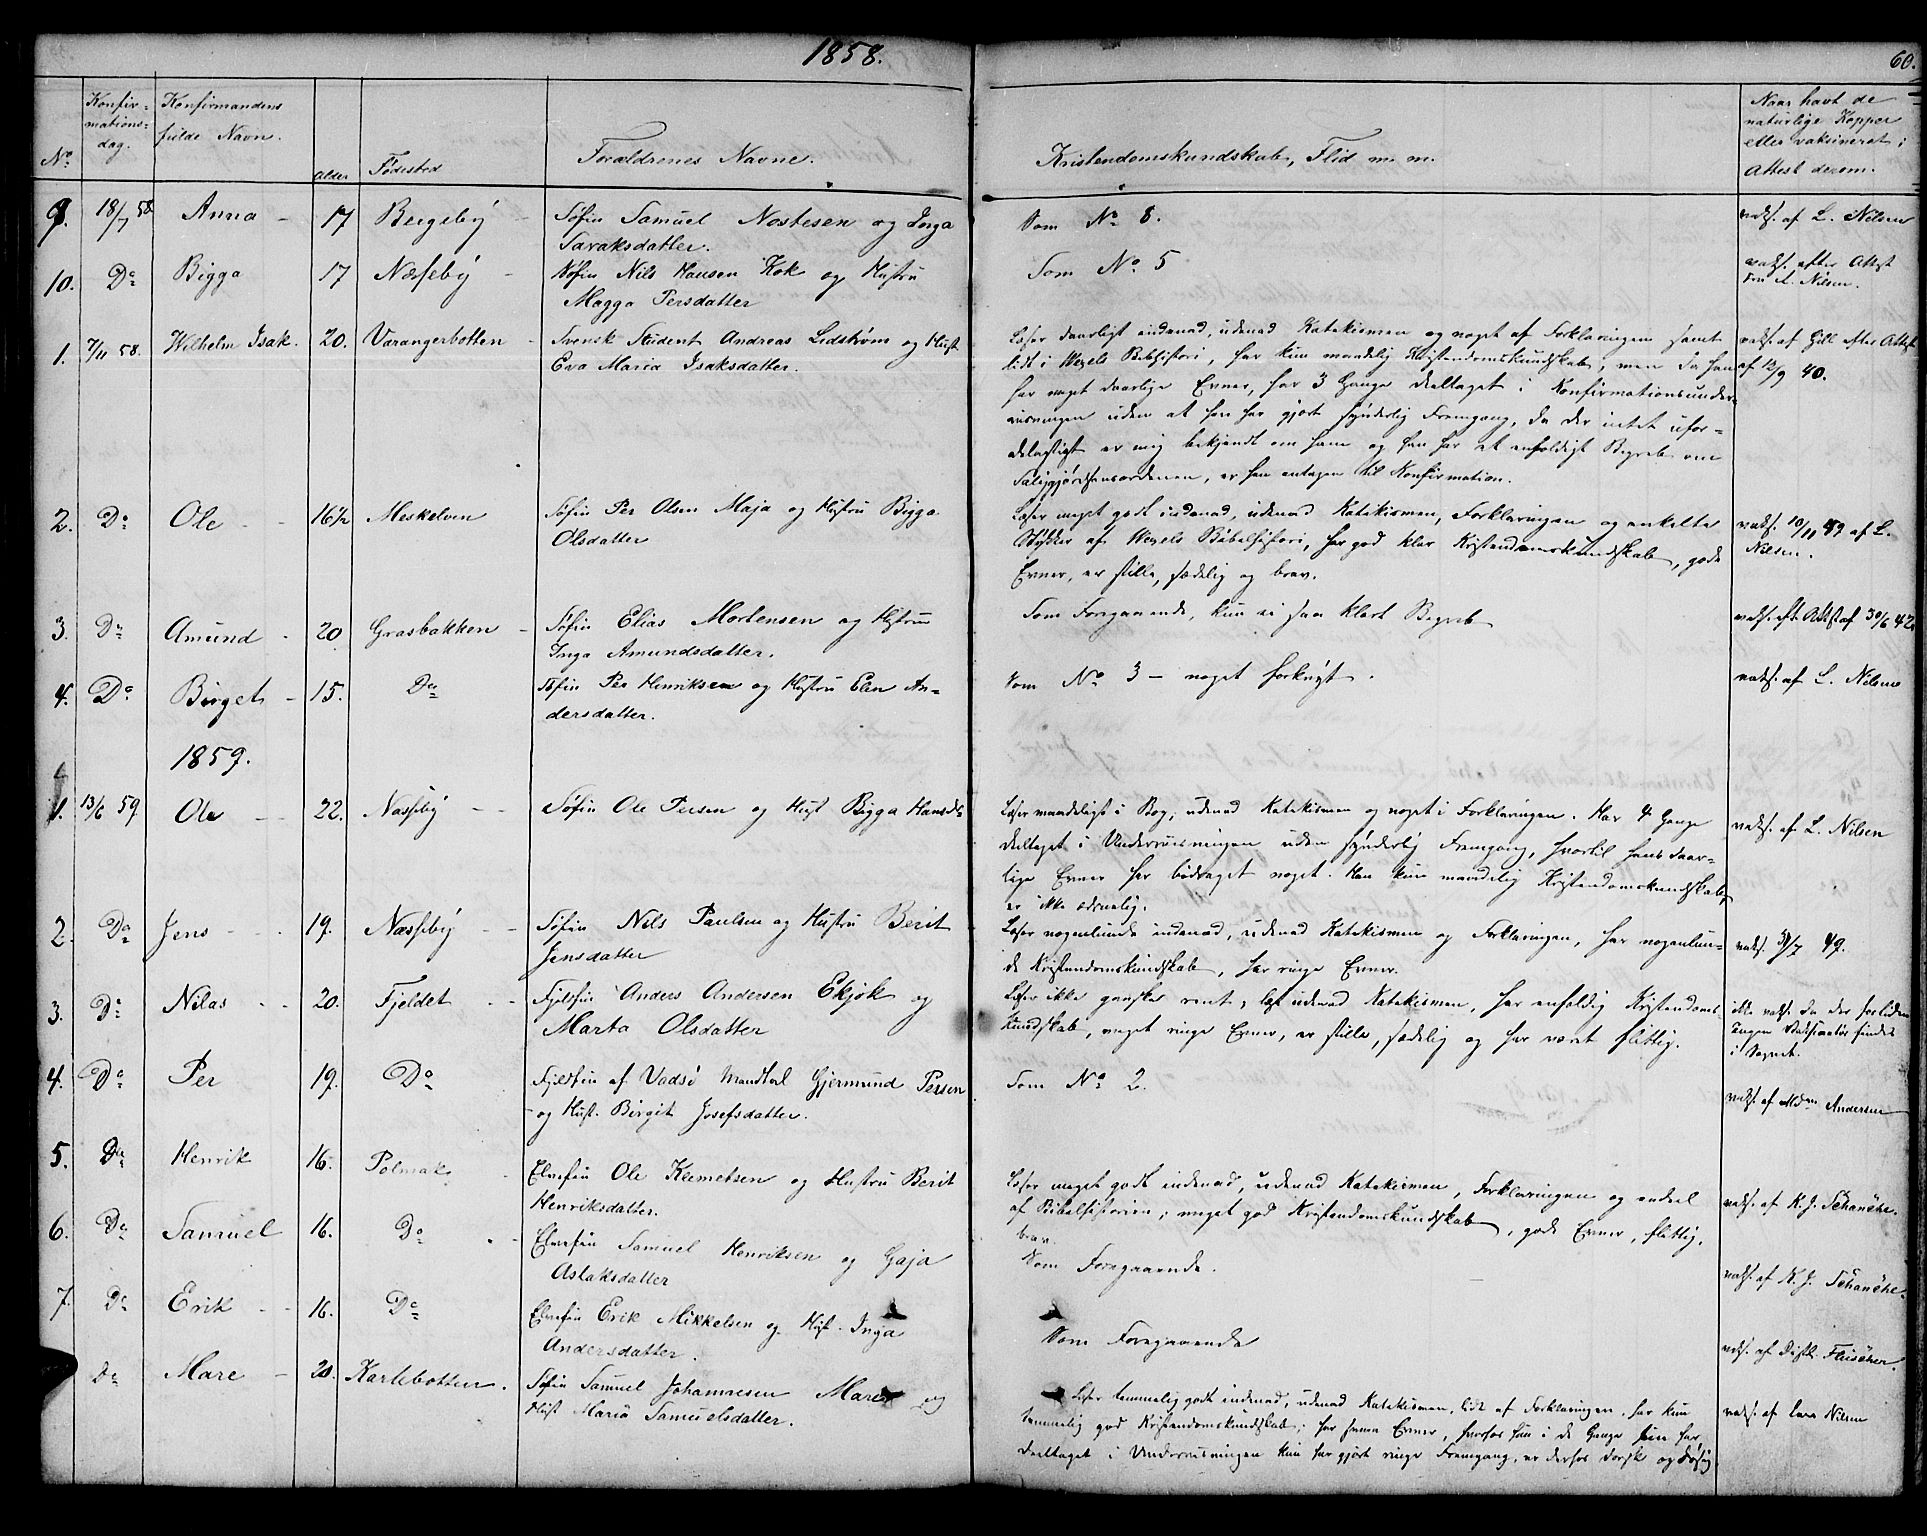 1858.
60.
No
Konfir-
mations-
dag.
Konfirmandens
fulde Navn.
Alder
Fødested
Forældrenes Navne.
Kristendomskundskab, Flid m. m.
Naar havt de
naturlige Kopper
eller vaksineret;
Attest derom.
9. 18/7 58 Anna - 17 Bergeby - Søfin Samuel Nostesen og Inga
Saraksdatter.
Som No 8.
vaks. af L. Nilsen
10. Do Bigga 17 Næsseby - Søfin Nils Hansen Kok og Hustru
Magga Persdatter
Som No 5
vaks. efter Attest
fra L. Nilsen.
1. 7/11 58. Wilhelm Isak. 20. Varangerbotten - Svensk Student Andreas Lidstrøm og Hust
Eva Maria Isaksdatter.
Læser daarligt indenad, udenad Katekismen og noget af Forklaringen samt
lidt i Wexels Bibelhistori, har kun maadelig Kristendomskundskab, men da han
har meget daarlige Evner, har 3 Gange deeltaget i Konfirmationsunder-
visningen uden at han har gjort synderlig Fremgang, da der intet ufor-
delagtigt er mig bekjendt om ham og han har et enfoldigt Begreb om
Saliggjørelsensordenen, er han antagen til Konfirmation.
vaks. af Gill efter Attest
af 12/9 40.
2. Do Ole - - 16½ Meskelven Søfin Per Olsen Maja og Hustru Bigga
Olsdatter
Læser meget godt indenad, udenad Katekismen, Forklaringen og enkelte
Stykker af Wexels Bibelhistori, har god klar Kristendomskundskab, gode
Evner, er stille, sædelig og brav.
vaks. 10/11 49 af L.
Nilsen.
3. Do Amund - 20 Grasbakken - Søfin Elias Mortensen og Hustru
Inga Amundsdatter.
Som Foregaaende, kun ei saa klart Begreb
vaks. eft. Attst af 30/6 42.
4. Do Birget - 15. Do Søfin Per Henriksen og Hustru Elen An-
dersdatter.
Som No 3 - noget forknyt.
vaks. af L. Nilsen
1859.
1. 13/6 59. Ole - - 22. Næsseby - - Søfin Ole Persen og Hust Bigga Hansdr
Læser maadeligt i Bog, udenad Katekismen og noget i Forklaringen. Har 4 Gange
deeltaget i Undervisningen uden synderlig Fremgang, hvortil hans daar-
lige Evner har bidraget noget. Har kun maadelig Kristendomskundskab,
er ikke
vaks. af L. Nilsen
2. Do Jens - - - 19. Næsseby - - Søfin Nils Paulsen og Hustru Berit
Jensdatter
Læser nogenlunde indenad, udenad Katekismen og Forklaringen, har nogenlun-
de Kristendomskundskab, har ringe Evner.
vaks. 31/7 49.
3. Do Nilas - - 20. Fjeldet - - Fjeldfin Anders Andersen Ekjok og
Marta Olsdatter
Læser ikke ganske rent, læst udenad Katekismen, har enfoldig Kristendoms-
kundskab, meget ringe Evner, er stille, sædelig og har været flittig.
ikke vaks. da der for tiden
Ingen Vaksinatør findes
i Sognet.
4. Do Per 19. Do Fjeldfin af Vadsö Mandtal Gjermund Persen
- og Hust. Birgit Josefsdatter.
Som No 2.
vaks. af Mdm Andersen
5. Do Henrik 16. Polmak - Elvefin Ole Klemetsen og Hustru Berit
Henriksdatter.
Læser meget godt indenad, udenad Katekismen, Forklaringen og endeel
af Bibelhistorien, meget god Kristendomskundskab, gode Evner, flittig,
brav.
vaks. af K. J. Schanche.
6. Do Samuel 16. Do - Elvefin Samuel Henriksen og Gaja
Aslaksdatter
Som Foregaaende.
vaks. af K. J. Schanche.
7. Do Erik - - 16. Do Elvefin Erik Mikkelsen og Hust. Inga
Andersdatter.
Som Foregaaende
vaks. af Distl. Fleischer.
Do Mare - 20. Karlebotten. Søfin Samuel Johannesen Mare og
Hust Maria Samuelsdatter.
Læser temmelig godt indenad, udenad Katekismen, lidt af Forklaringen, har kun
temmelig god Kristendomskundskab; har smaa Evner, hvorfor hun i de Gange hun har
deeltaget i Undervisningen kun har gjort ringe Fremgang, er derfor dorsk og døsig
vaks. af Lars Nilsen